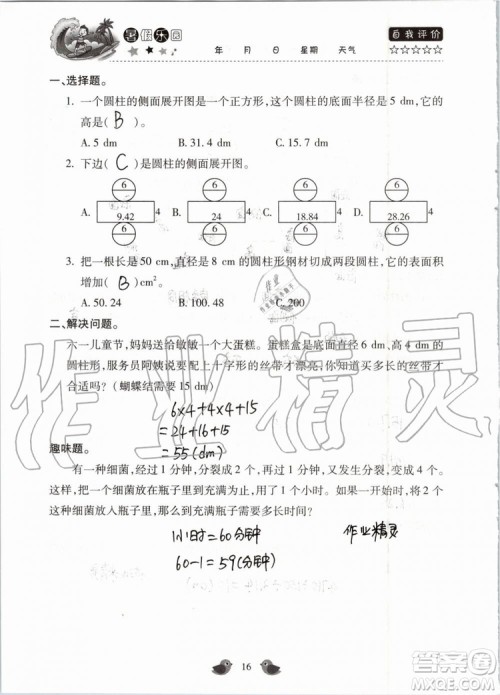 暑假乐园
年 月 日 星期 天气
自我评价
☆☆☆☆☆
一、选择题。
1. 一个圆柱的侧面展开图是一个正方形,这个圆柱的底面半径是 5 dm,它的
高是( B )。
A. 5 dm B. 31. 4 dm C. 15. 7 dm
2. 下边( C )是圆柱的侧面展开图。
6 6 6 6
A. 9.42 4 B. 24 4 C. 18.84 4 D. 28.26 4
6 6 6 6
3. 把一根长是 50 cm,直径是 8 cm 的圆柱形钢材切成两段圆柱,它的表面积
增加( B )cm².
A. 50. 24 B. 100. 48 C. 200
二、解决问题。
六一儿童节,妈妈送给敏敏一个大蛋糕。蛋糕盒是底面直径 6 dm、高 4 dm 的
圆柱形,服务员阿姨说要配上十字形的丝带才漂亮,你知道买多长的丝带才
合适吗?(蝴蝶结需要 15 dm)
6×4+4×4+15
=24+16+15
=55(dm)
趣味题。
有一种细菌,经过 1 分钟,分裂成 2 个,再过 1 分钟,又发生分裂,变成 4 个。
这样,把一个细菌放在瓶子里到充满为止,用了 1 个小时。如果一开始,将 2 个
这种细菌放入瓶子里,那么到充满瓶子需要多长时间?
1小时=60分钟
60-1=59(分钟)
作业精灵
作业精灵
16
答案圈
MXQE.COM